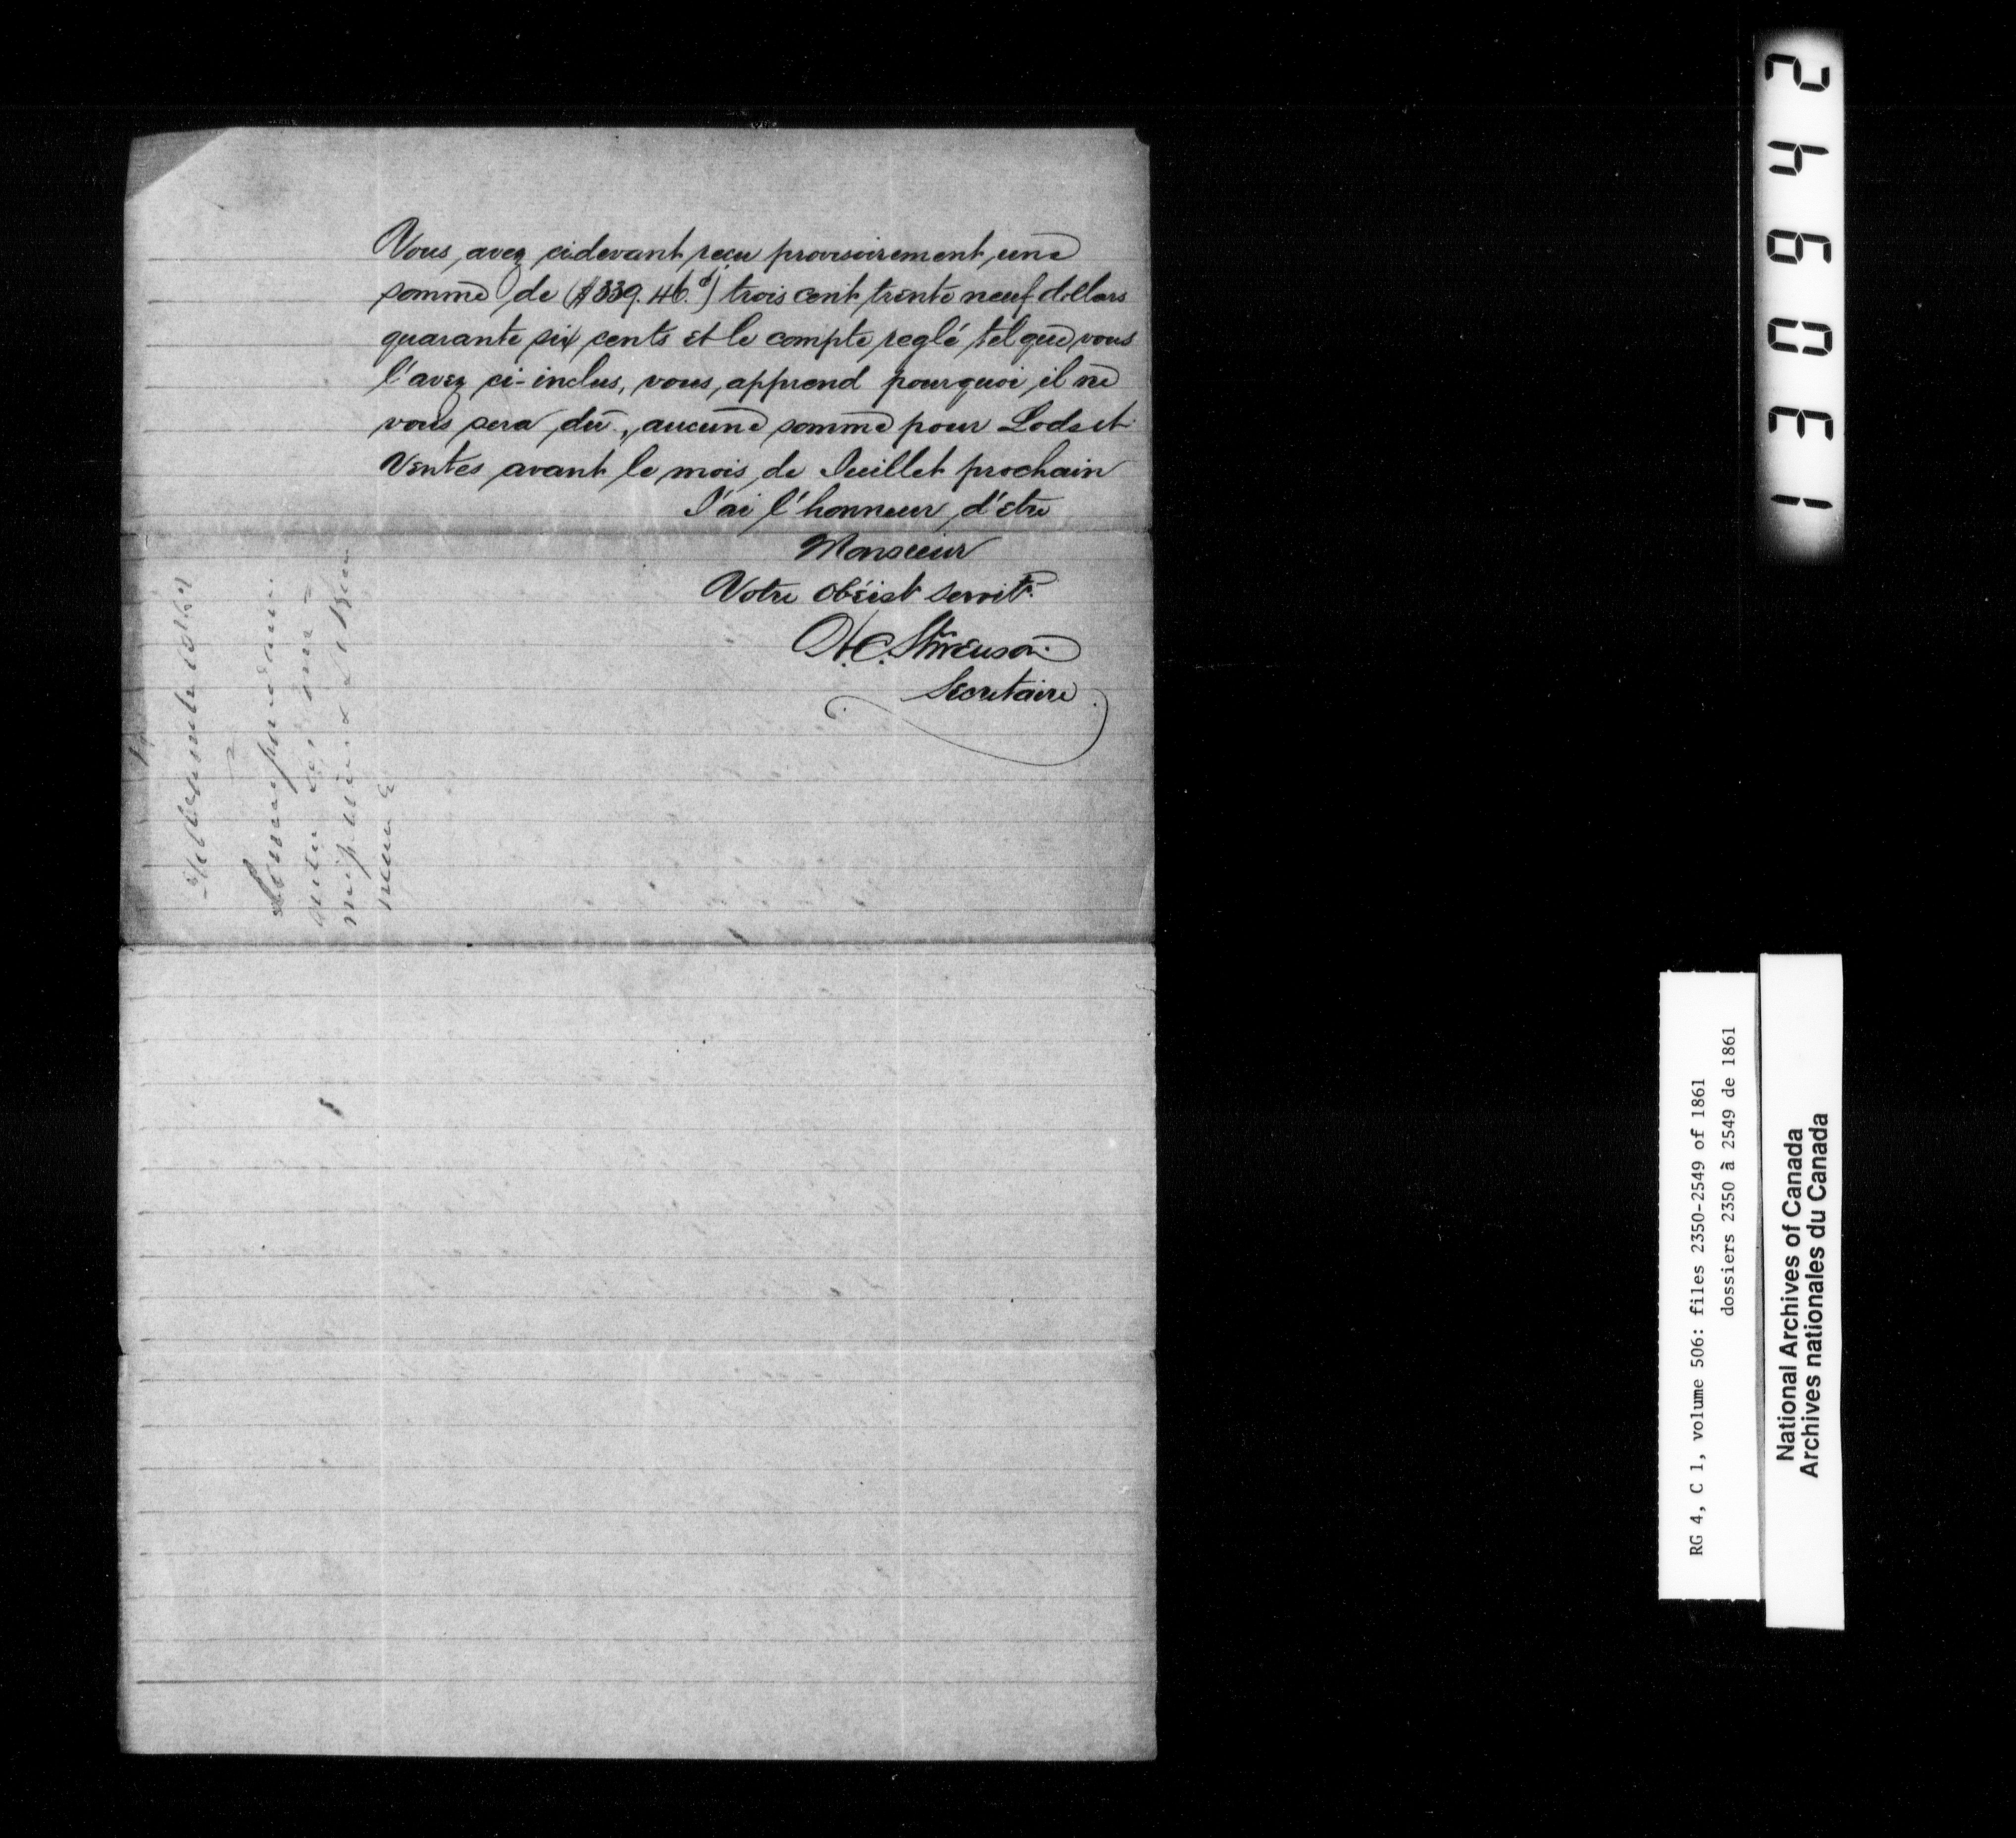 Vous avez cidevant reçu provisoirement une
somme de ($339.46.c) trois cent trente neuf dollars
quarante six cents et le compte reglé tel que vous
l'avez ci-inclus, vous apprend pourquoi il ne
vous sera dû, aucune somme pour Lods et
Ventes avant le mois de Juillet prochain
J'ai l'honneur d'etre
Monsieur
Votre obéist servitr.
H.C. Stevenson
Secretaire
130942
RG 4, C 1, volume 506: files 2350-2549 of 1861
dossiers 2350 à 2549 de 1861
National Archives of Canada
Archives nationales du Canada